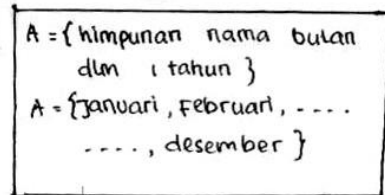 A = { himpunan nama bulan
dlm 1 tahun }
A = {Januari, Februari, ----
----, desember }